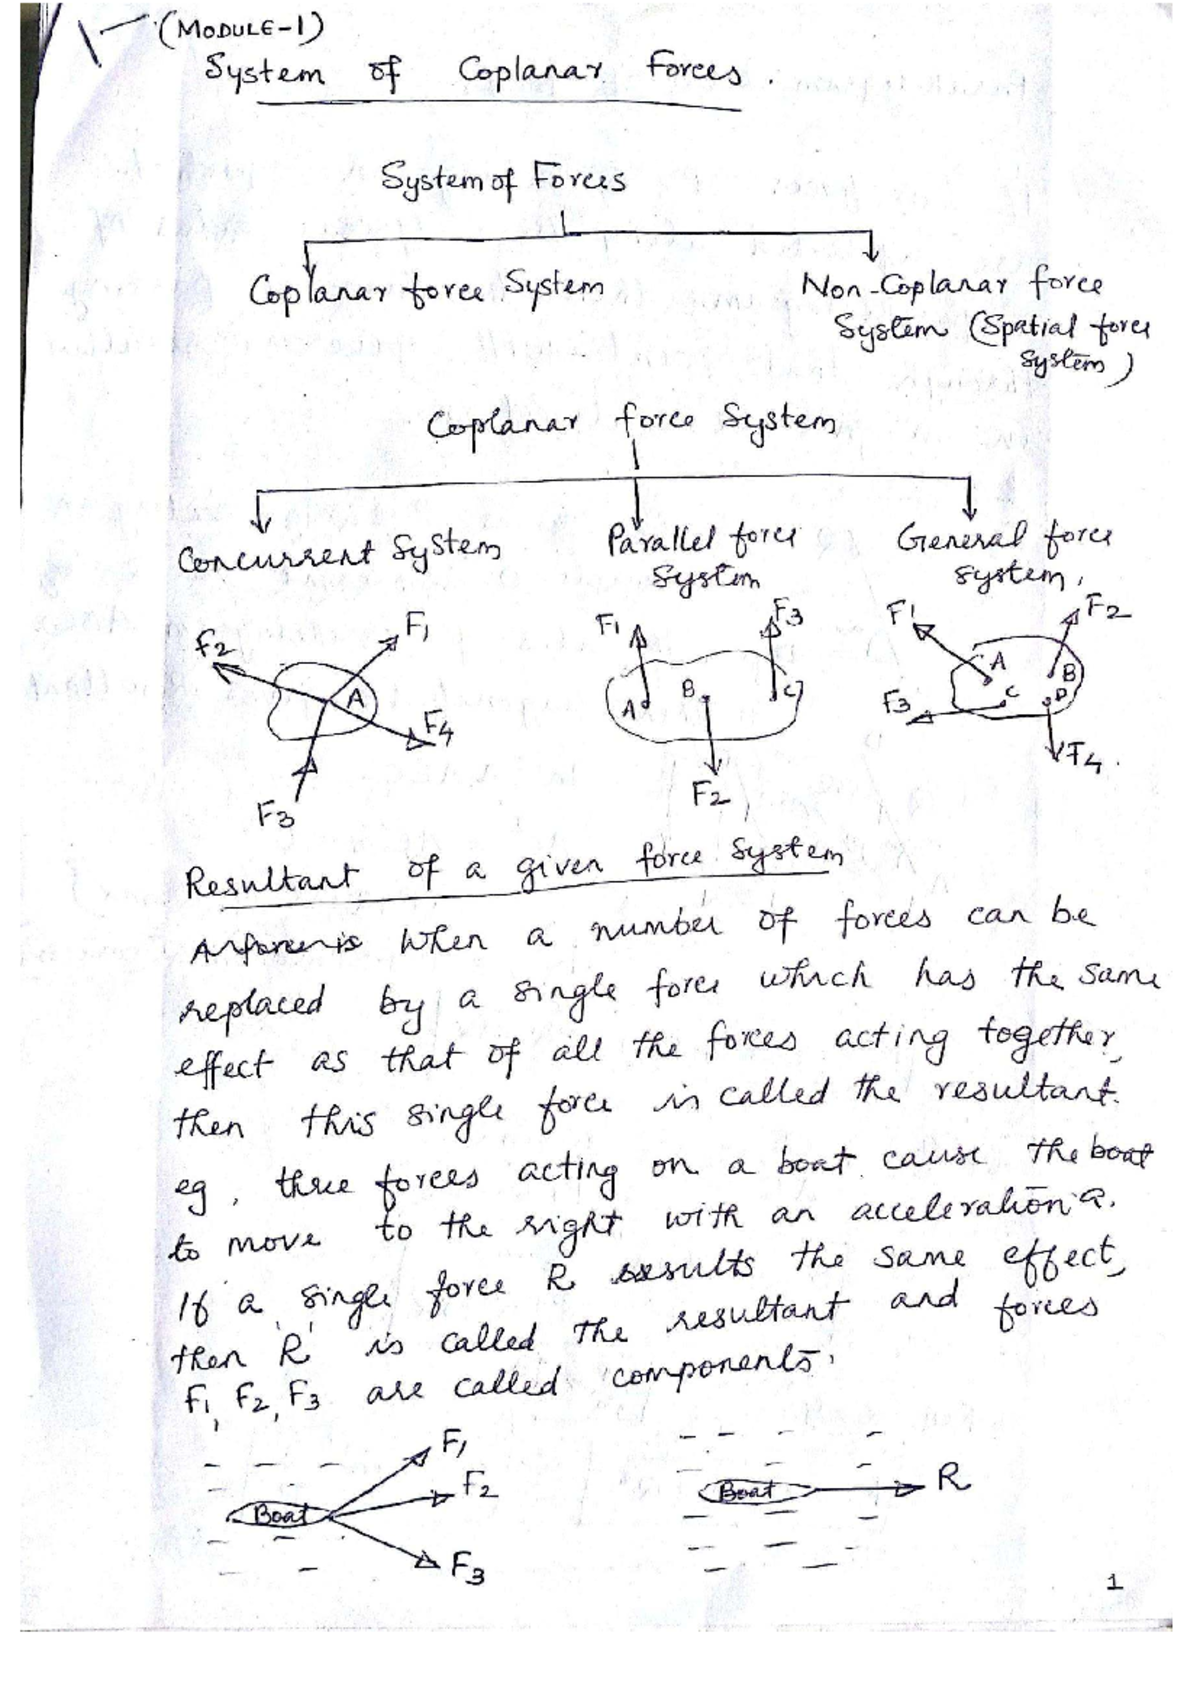 (MODULE-1)
System of Coplanar Forces.
System of Forces
Coplanar force System
Non-Coplanar force
System (Spatial force
System)
Coplanar force System
Concurrent System
Parallel force
System
General force
System.
F1
F2
A
F4
F3
F1
F3
A
B
C
F2
F1
F2
A
B
C
D
F3
F4.
Resultant of a given force System
When a number of forces can be
replaced by a single force which has the same
effect as that of all the forces acting together,
then this single force is called the resultant.
eg, three forces acting on a boat cause the boat
to move to the right with an acceleration a.
If a single force R results the same effect,
then R is called the resultant and forces
F1, F2, F3 are called components.
F1
F2
Boat
F3
Boat
R
1